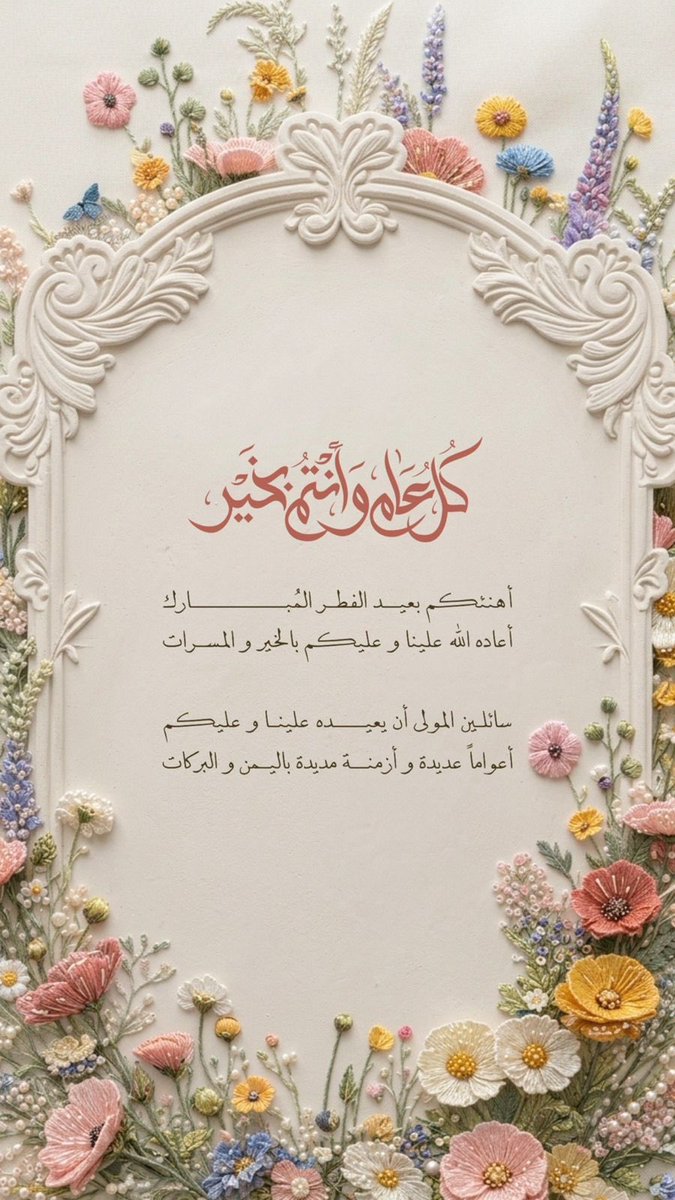 كُلُ عَام وَأَنْتُمُ بِخَيْر
أهنئكم بعيد الفطر المُبارك
أعاده الله علينا و عليكم بالخير و المسرات
سائلين المولى أن يعيده علينا و عليكم
أعواماً عديدة و أزمنة مديدة باليمن و البركات